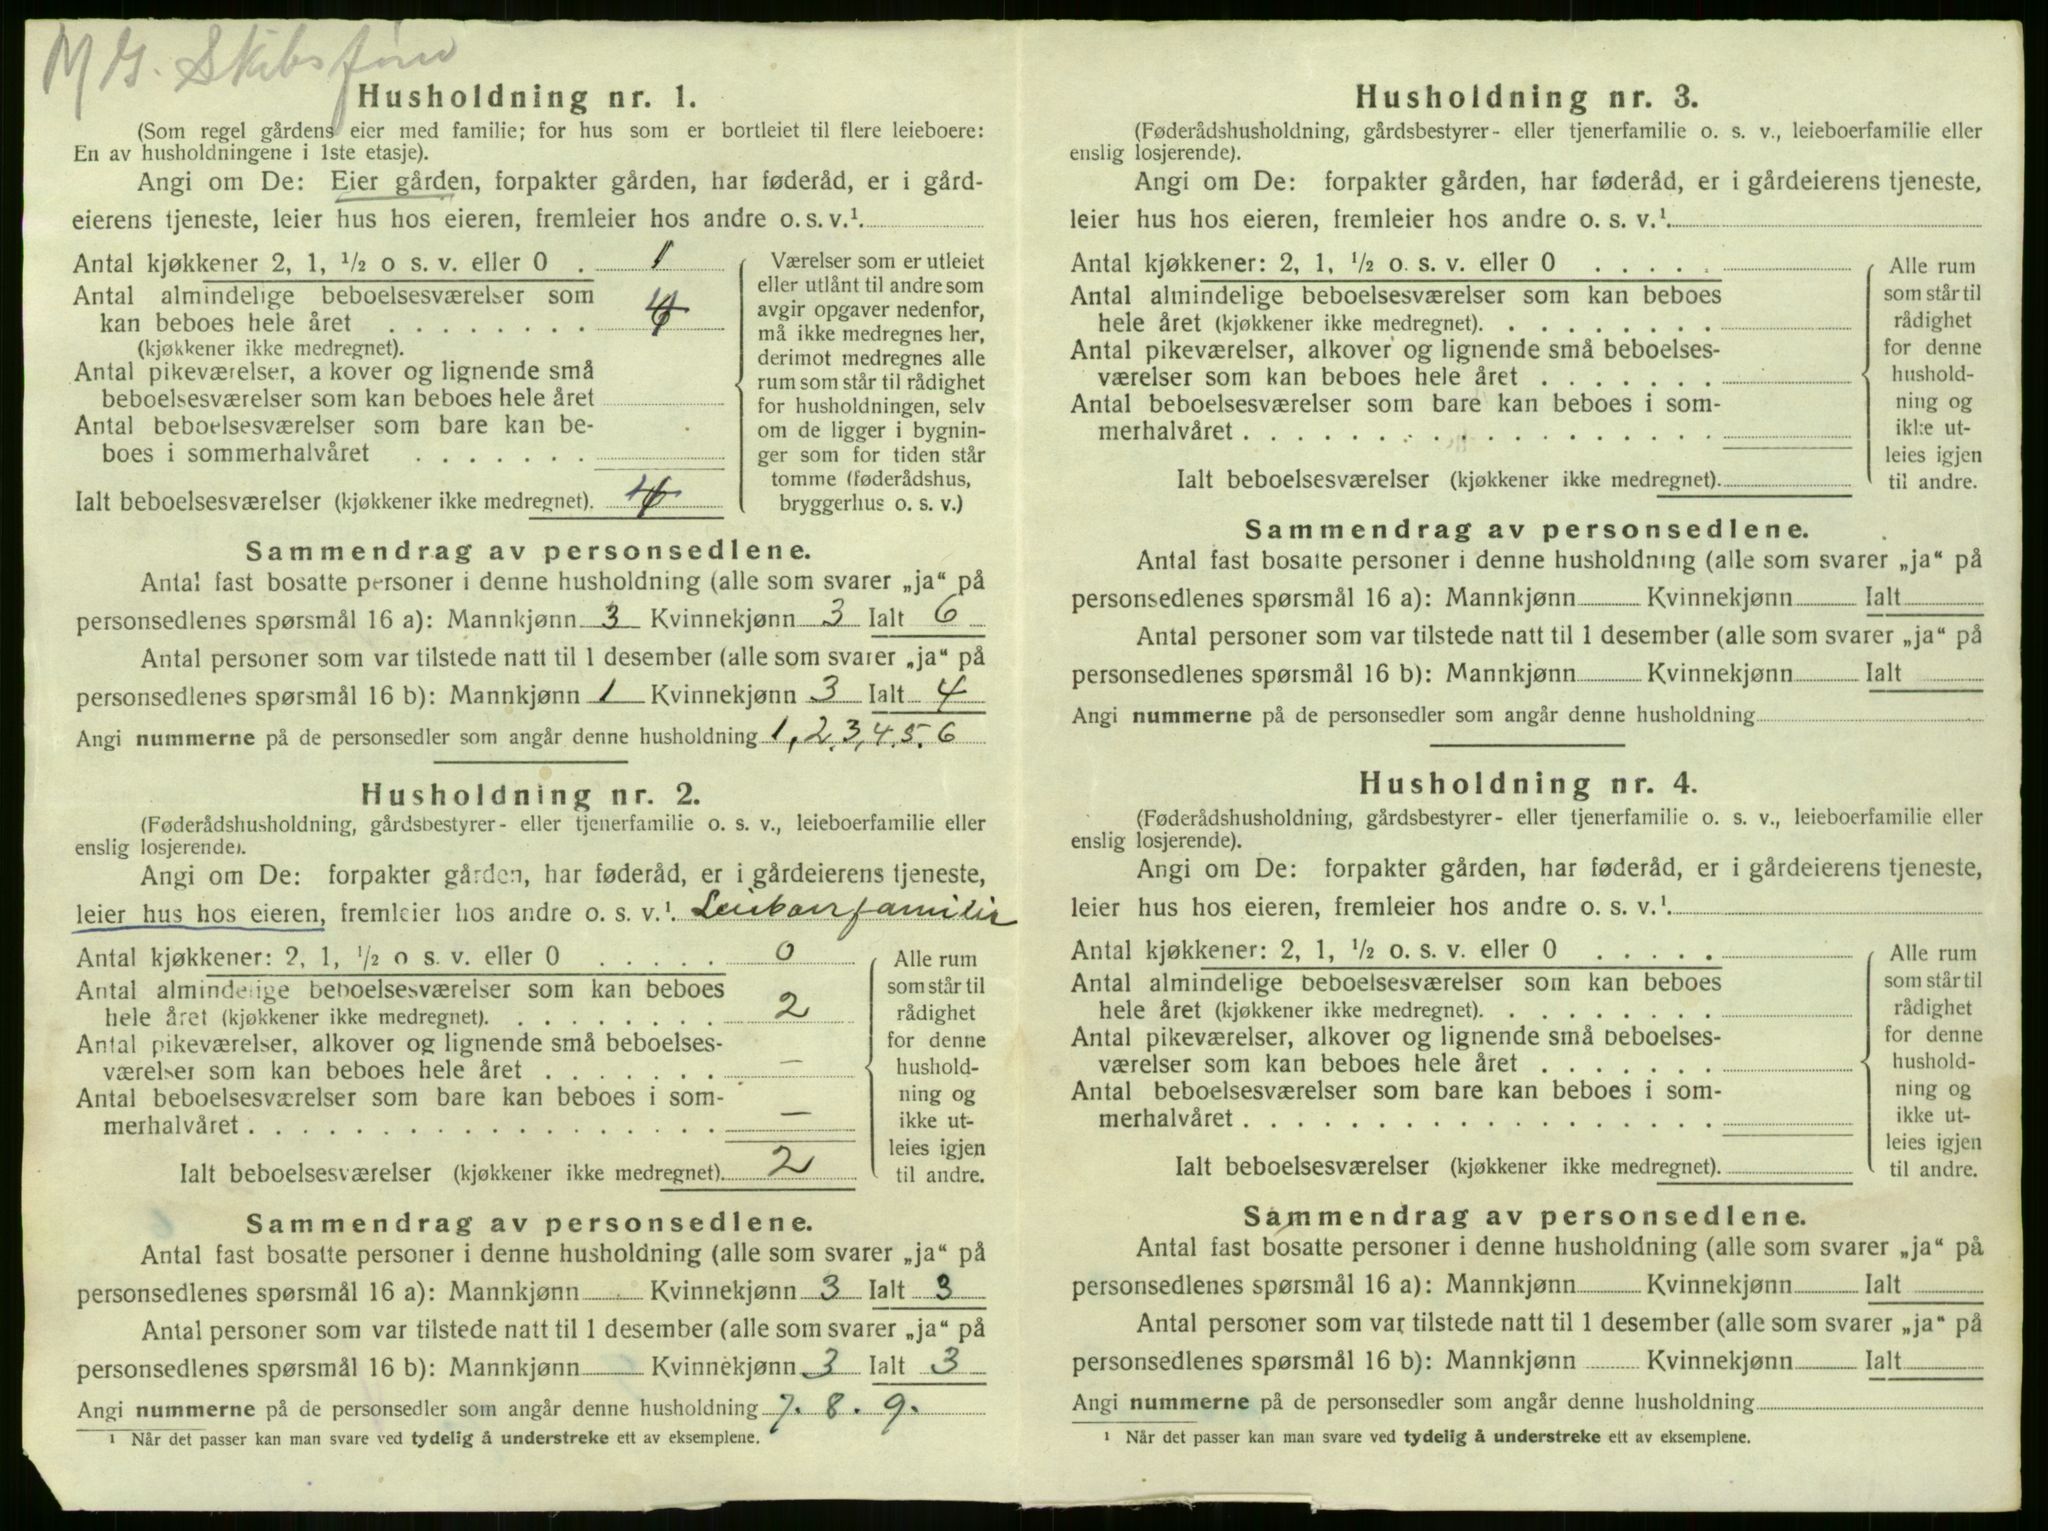 Husholdning nr. 1.
(Som regel gårdens eier med familie; for hus som er bortleiet til flere leieboere:
En av husholdningene i 1ste etasje).
Angi om De: Eier gården, forpakter gården, har føderåd, er i gård-
eierens tjeneste, leier hus hos eieren, fremleier hos andre o. s. v.¹
Antal kjøkkener 2, 1, ½ o s. v. eller 0 . 1
Antal almindelige beboelsesværelser som
kan beboes hele året . . . . . . . . 4
(kjøkkener ikke medregnet).
Antal pikeværelser, a kover og lignende små
beboelsesværelser som kan beboes hele året
Antal beboelsesværelser som bare kan be-
boes i sommerhalvåret . . . . . . .
Ialt beboelsesværelser (kjøkkener ikke medregnet). 4
Værelser som er utleiet
eller utlånt til andre som
avgir opgaver nedenfor,
må ikke medregnes her,
derimot medregnes alle
rum som står til rådighet
for husholdningen, selv
om de ligger i bygnin-
ger som for tiden står
tomme (føderådshus,
bryggerhus o. s. v.)
Sammendrag av personsedlene.
Antal fast bosatte personer i denne husholdning (alle som svarer „ja“ på
personsedlenes spørsmål 16 a): Mannkjønn 3 Kvinnekjønn 3 Ialt 6
Antal personer som var tilstede natt til 1 desember (alle som svarer „ja“ på
personsedlenes spørsmål 16 b): Mannkjønn 1 Kvinnekjønn 3 Ialt 4
Angi nummerne på de personsedler som angår denne husholdning 1, 2, 3, 4, 5, 6
Husholdning nr. 2.
(Føderådshusholdning, gårdsbestyrer- eller tjenerfamilie o. s. v., leieboerfamilie eller
enslig losjerende).
Angi om De: forpakter gården, har føderåd, er i gårdeierens tjeneste,
leier hus hos eieren, fremleier hos andre o. s. v.¹
Antal kjøkkener: 2, 1, ½ o s. v. eller 0 . . . . . 0
Antal almindelige beboelsesværelser som kan beboes
hele året (kjøkkener ikke medregnet). . . . . . . . . 2
Antal pikeværelser, alkover og lignende små beboelses-
værelser som kan beboes hele året . . . . . . . —
Antal beboelsesværelser som bare kan beboes i som-
merhalvåret . . . . . . . . . . . . . . . . . . —
Ialt beboelsesværelser (kjøkkener ikke medregnet). 2
Alle rum
som står til
rådighet
for denne
hushold-
ning og
ikke ut-
leies igjen
til andre.
Sammendrag av personsedlene.
Antal fast bosatte personer i denne husholdning (alle som svarer „ja“ på
personsedlenes spørsmål 16 a): Mannkjønn Kvinnekjønn 3 Ialt 3
Antal personer som var tilstede natt til 1 desember (alle som svarer „ja“ på
personsedlenes spørsmål 16 b): Mannkjønn Kvinnekjønn 3 Ialt 3
Angi nummerne på de personsedler som angår denne husholdning 7. 8. 9.
¹ Når det passer kan man svare ved tydelig å understreke ett av eksemplene.
Husholdning nr. 3.
(Føderådshusholdning, gårdsbestyrer- eller tjenerfamilie o. s. v., leieboerfamilie eller
enslig losjerende).
Angi om De: forpakter gården, har føderåd, er i gårdeierens tjeneste,
leier hus hos eieren, fremleier hos andre o. s. v.¹
Antal kjøkkener: 2, 1, ½ o. s. v. eller 0 . . . . .
Antal almindelige beboelsesværelser som kan beboes
hele året (kjøkkener ikke medregnet). . . . . . . . .
Antal pikeværelser, alkover og lignende små beboelses-
værelser som kan beboes hele året . . . . . . .
Antal beboelsesværelser som bare kan beboes i som-
merhalvåret . . . . . . . . . . . . . . . . . .
Ialt beboelsesværelser (kjøkkener ikke medregnet).
Alle rum
som står til
rådighet
for denne
hushold-
ning og
ikke ut-
leies igjen
til andre.
Sammendrag av personsedlene.
Antal fast bosatte personer i denne husholdning (alle som svarer „ja“ på
personsedlenes spørsmål 16 a): Mannkjønn Kvinnekjønn Ialt
Antal personer som var tilstede natt til 1 desember (alle som svarer „ja“ på
personsedlenes spørsmål 16 b): Mannkjønn Kvinnekjønn Ialt
Angi nummerne på de personsedler som angår denne husholdning
Husholdning nr. 4.
(Føderådshusholdning, gårdsbestyrer- eller tjenerfamilie o. s. v., leieboerfamilie eller
enslig losjerende).
Angi om De: forpakter gården, har føderåd, er i gårdeierens tjeneste,
leier hus hos eieren, fremleier hos andre o. s. v.¹
Antal kjøkkener: 2, 1, ½ o. s. v. eller 0 . . . . .
Antal almindelige beboelsesværelser som kan beboes
hele året (kjøkkener ikke medregnet). . . . . . . . .
Antal pikeværelser, alkover og lignende små beboelses-
værelser som kan beboes hele året . . . . . . .
Antal beboelsesværelser som bare kan beboes i som-
merhalvåret . . . . . . . . . . . . . . . . . .
Ialt beboelsesværelser (kjøkkener ikke medregnet).
Alle rum
som står til
rådighet
for denne
hushold-
ning og
ikke ut-
leies igjen
til andre.
Sammendrag av personsedlene.
Antal fast bosatte personer i denne husholdning (alle som svarer „ja“ på
personsedlenes spørsmål 16 a): Mannkjønn Kvinnekjønn Ialt
Antal personer som var tilstede natt til 1 desember (alle som svarer „ja“ på
personsedlenes spørsmål 16 b): Mannkjønn Kvinnekjønn Ialt
Angi nummerne på de personsedler som angår denne husholdning
¹ Når det passer kan man svare ved tydelig å understreke ett av eksemplene.